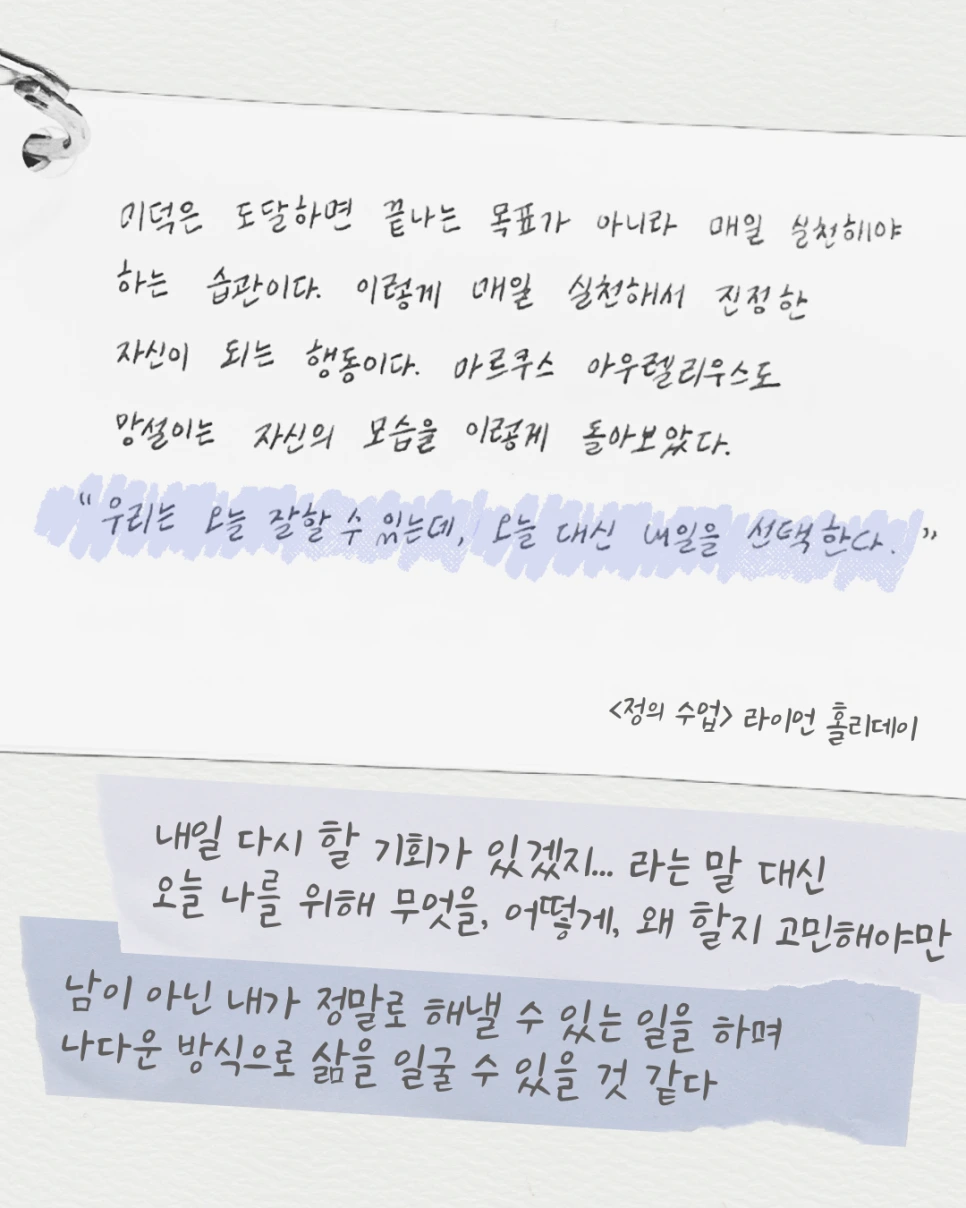 미덕은 도달하면 끝나는 목표가 아니라 매일 실천해야
하는 습관이다. 이렇게 매일 실천해서 진정한
자신이 되는 행동이다. 마르쿠스 아우렐리우스도
망설이는 자신의 모습을 이렇게 돌아보았다.
“우리는 오늘 잘할 수 있는데, 오늘 대신 내일을 선택한다.”
<정의 수업> 라이언 홀리데이
내일 다시 할 기회가 있겠지... 라는 말 대신
오늘 나를 위해 무엇을, 어떻게, 왜 할지 고민해야만
남이 아닌 내가 정말로 해낼 수 있는 일을 하며
나다운 방식으로 삶을 일굴 수 있을 것 같다